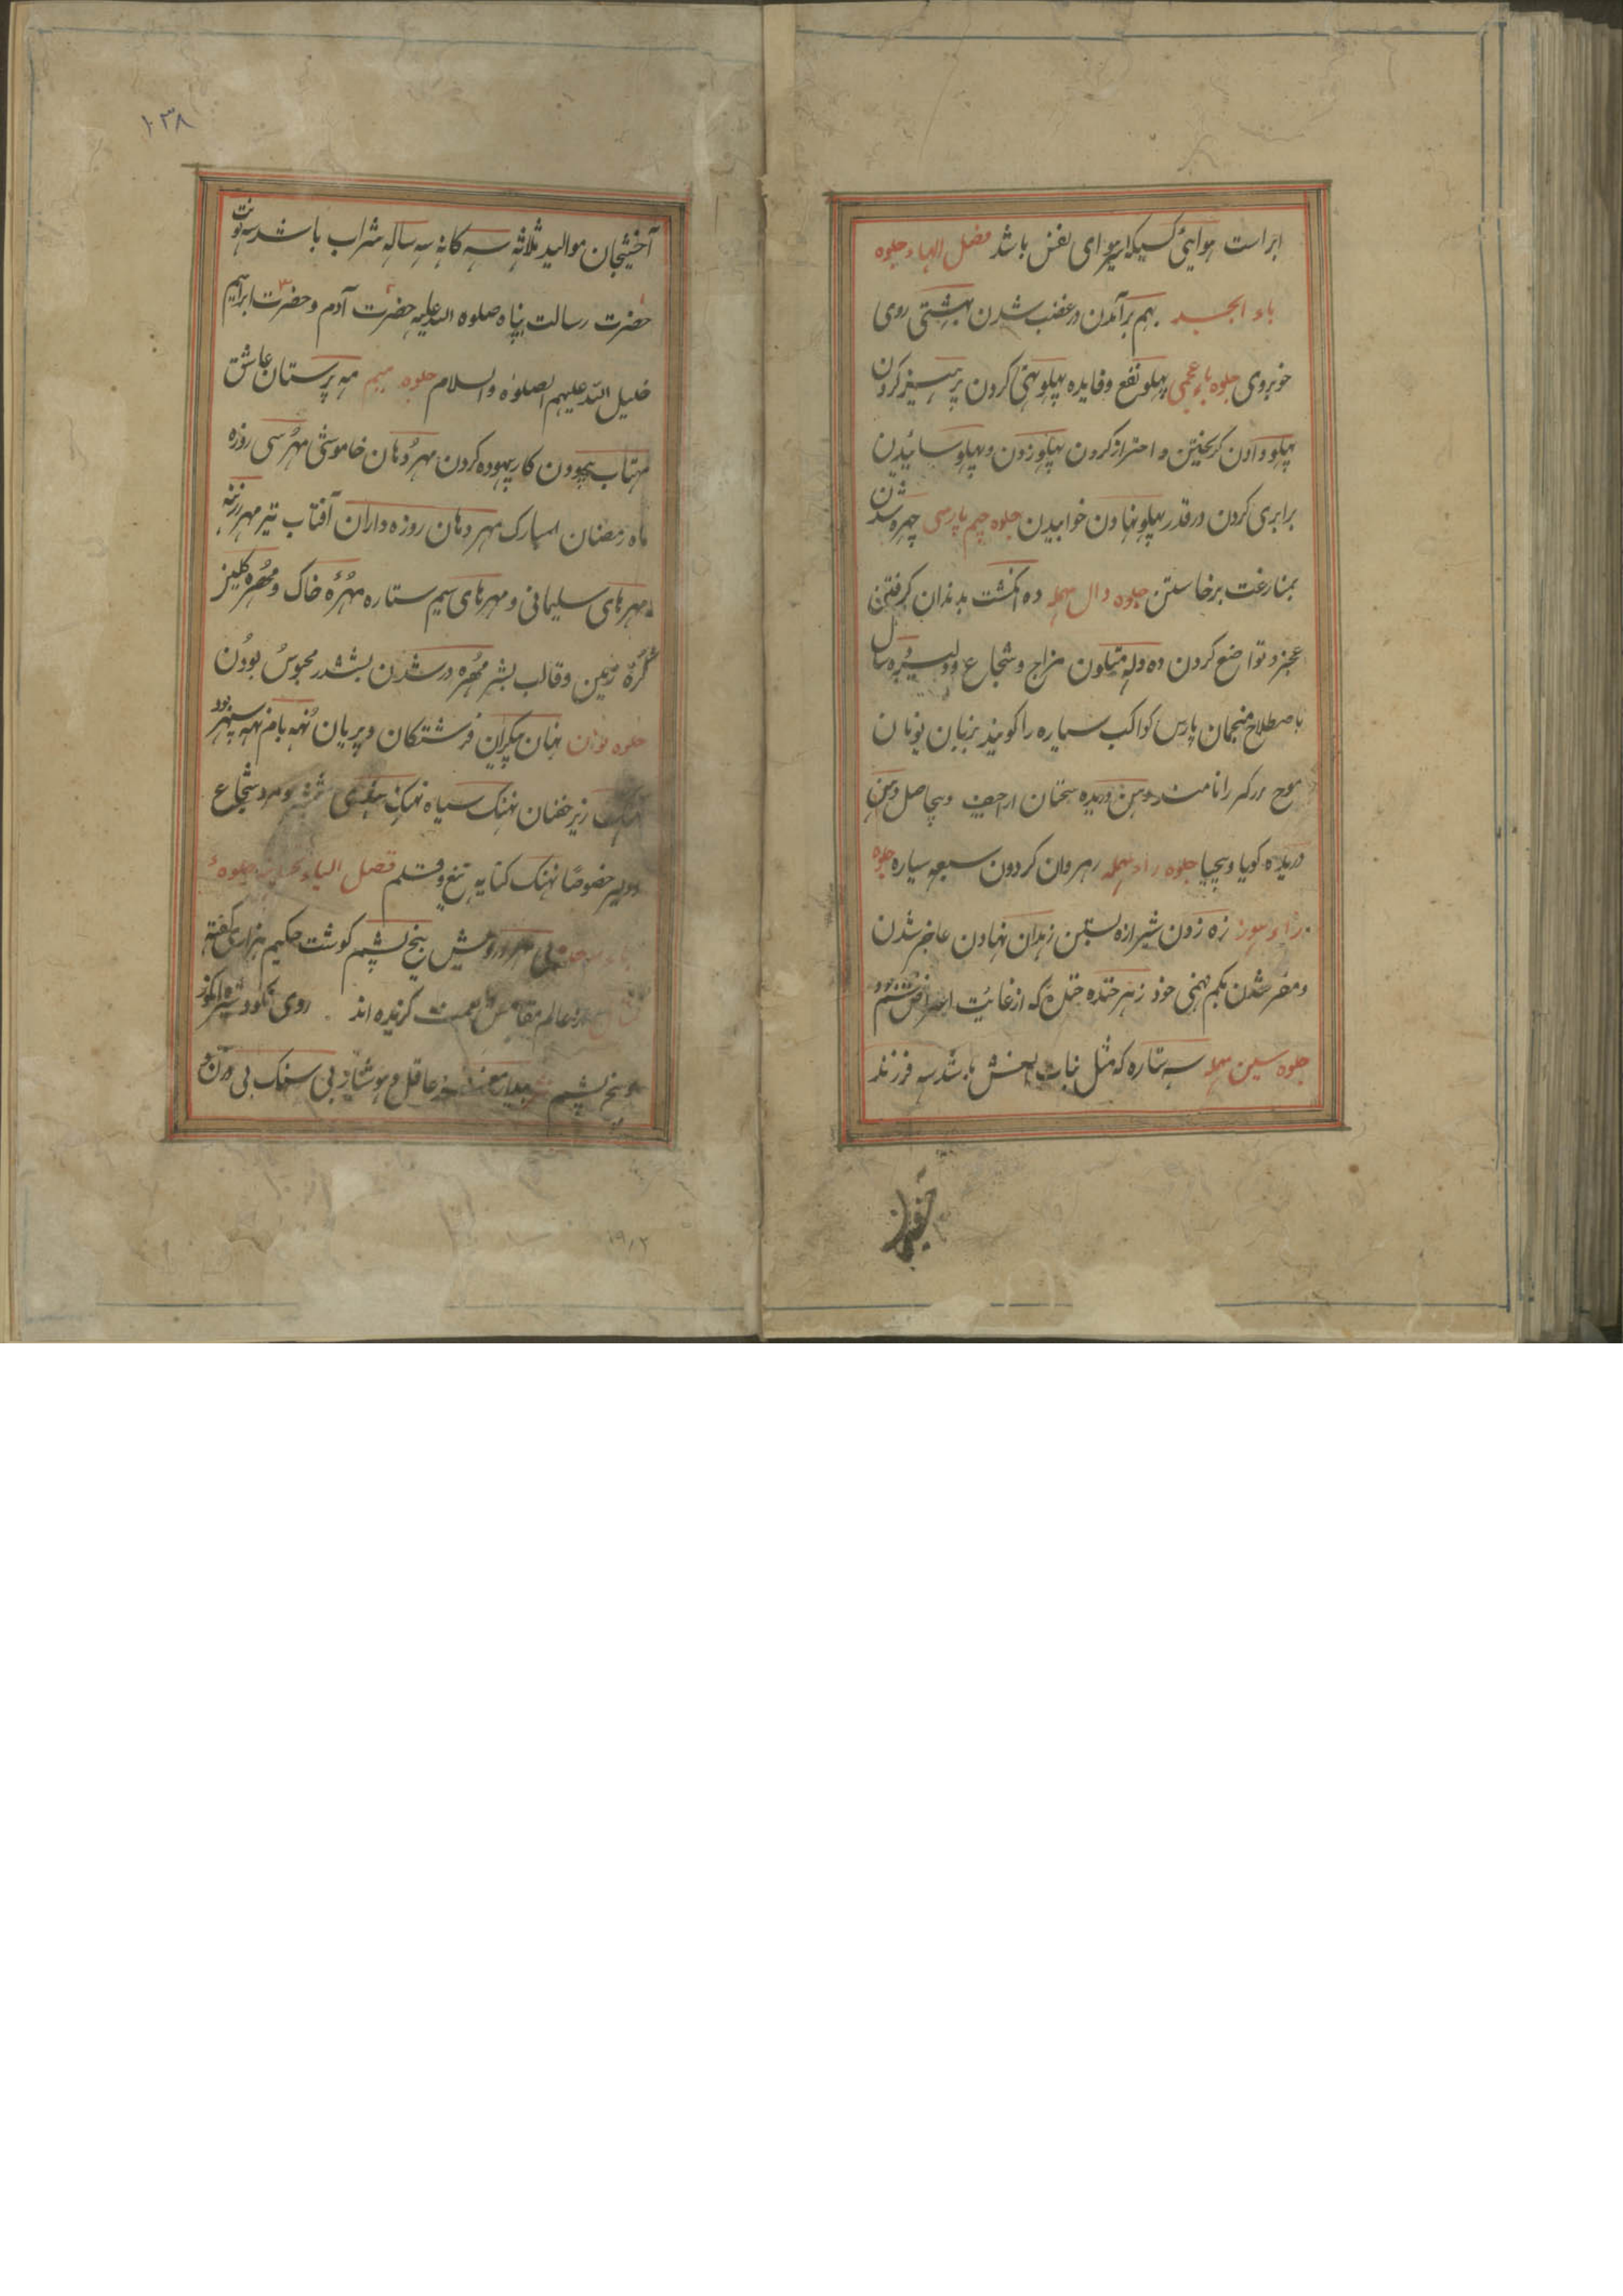 ابر است هوایی کسیکه اسیر هوای نفس باشد فصل الهاء جلوه
باء ابجد بهم برآمدن در غضب شدن بهشتی روی
خوبروی جلوه باء عجمی پهلو نفع و فایده پهلو تهی کردن پرهیز کردن
پهلو دادن گریختن و احتراز کردن پهلو زدن و پهلو سائیدن
برابری کردن در قدر پهلو نهادن خوابیدن جلوه جیم پارسی چهره شدن
بمنازعت برخاستن جلوه دال مهمله ده انگشت بدندان گرفتن
عجز و تواضع کردن ده دله متلون مزاج و شجاع و دلیر
باصطلاح منجمان پارس کواکب سیاره را گویند بزبان یونان
موج بزرگ را نامند دهن دریده سخنان
دریده گویا و بیحیا جلوه راء مهمله رهروان گردون سبعه سیاره جلوه
زاء هوز زه زدن شیرازه بستن زهدان نهادن عاجز شدن
و مقر شدن بکم فهمی خود زهرخنده خنده که از غایت
جلوه سین مهمله سه ستاره که مثل نبات النعش باشد سه فرزند
۱۰۳۸
آخشیجان موالید ثلاثه سه گانه سه ساله شراب باشد سه نوبت
حضرت رسالت پناه صلوه الله علیه حضرت آدم و حضرت ابراهیم
خلیل الله علیهم الصلوة والسلام جلوه میم مه پرستان عاشق
مهتاب پیمودن کار بیهوده کردن مهر دهان خاموشی مهر سی روزه
ماه رمضان المبارک مهر دهان روزه داران آفتاب تیر مهر
مهرهای سلیمانی و مهرهای سیم ستاره مهره خاک و مهره
کره زمین و قالب بشر مهره در ششدر بششدر محبوس بودن
جلوه نون نهان پیکران فرشتگان و پریان نهه بام نهه سپهر
زیر خفتان نهنک سیاه نهنک هندی شمشیر و مرد شجاع
و دلیر خصوصا نهنک کنایه تیغ و قلم فصل الیاء جلوهٔ
بیخ پشم گوشت حکیم
عالم همت گزیده اند روی
و بیخ پشم عاقل و هوشیار بی سنک بی
۱۹/۲